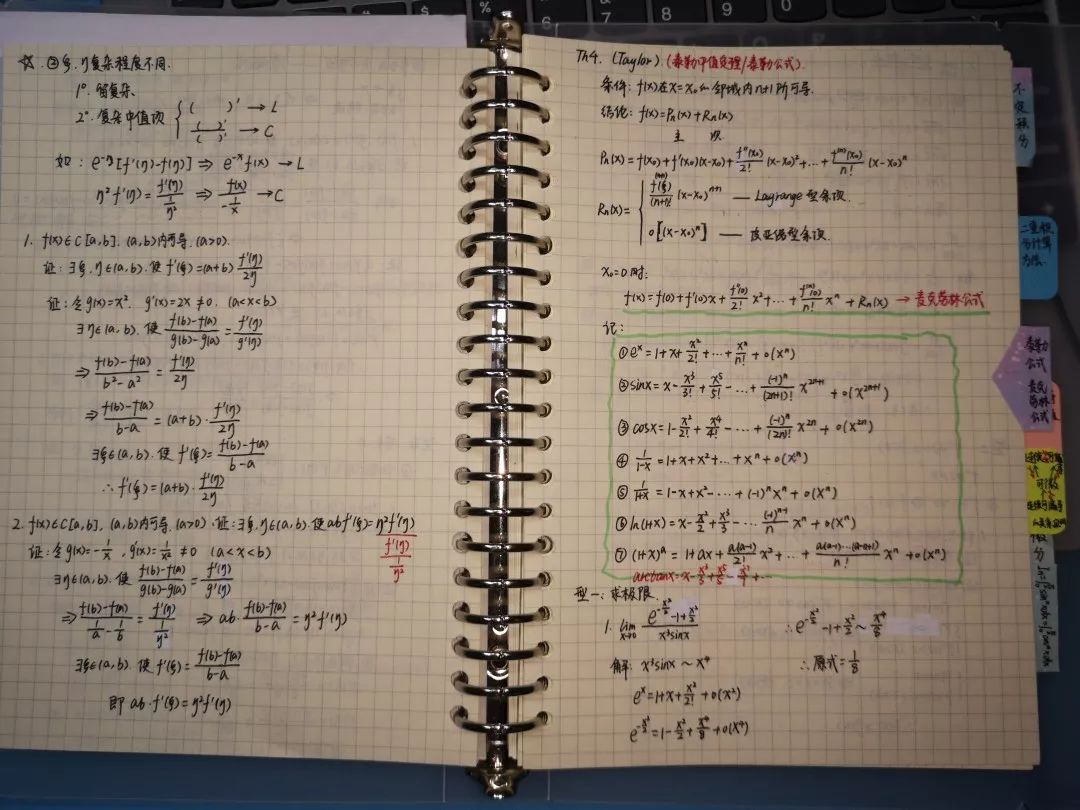 ☆ ②ξ.η复杂程度不同.
1°. 留复杂.
2°. 复杂中值项 { ( )' → L
( )'/( )' → C
如: e^{-η}[f'(η)-f(η)] ⇒ e^{-x}f(x) → L
η²f'(η) = f'(η)/(1/η²) ⇒ f(x)/(-1/x) → C
1. f(x)∈C[a,b], (a,b)内可导. (a>0).
证: ∃ξ.η∈(a,b). 使 f'(ξ)=(a+b) f'(η)/2η
证: 令g(x)=x². g'(x)=2x≠0. (a<x<b)
∃η∈(a,b). 使 (f(b)-f(a))/(g(b)-g(a)) = f'(η)/g'(η)
⇒ (f(b)-f(a))/(b²-a²) = f'(η)/2η
⇒ (f(b)-f(a))/(b-a) = (a+b)·f'(η)/2η
∃ξ∈(a,b). 使 f'(ξ)=(f(b)-f(a))/(b-a)
∴ f'(ξ)=(a+b)·f'(η)/2η
2. f(x)∈C[a,b], (a,b)内可导. (a>0). 证: ∃ξ.η∈(a,b). 使abf'(ξ)=η²f'(η)
f'(η)/(1/η²)
证: 令g(x)=-1/x, g'(x)=1/x²≠0 (a<x<b)
∃η∈(a,b). 使 (f(b)-f(a))/(g(b)-g(a)) = f'(η)/g'(η)
⇒ (f(b)-f(a))/(1/a-1/b) = f'(η)/(1/η²) ⇒ ab·(f(b)-f(a))/(b-a) = η²f'(η)
∃ξ∈(a,b). 使 f'(ξ)=(f(b)-f(a))/(b-a)
即 ab·f'(ξ)=η²f'(η)
Th4. (Taylor). (泰勒中值定理/泰勒公式).
条件: f(x)在x=x₀的邻域内n+1阶可导.
结论: f(x)=Pn(x)+Rn(x)
主 次
Pn(x)=f(x₀)+f'(x₀)(x-x₀)+f''(x₀)/2! (x-x₀)²+...+f⁽ⁿ⁾(x₀)/n! (x-x₀)ⁿ
Rn(x)= { f⁽ⁿ⁺¹⁾(ξ)/(n+1)! (x-x₀)ⁿ⁺¹ — Lagrange型余项.
o[(x-x₀)ⁿ] — 皮亚诺型余项.
x₀=0时:
f(x)=f(0)+f'(0)x+f''(0)/2! x²+...+f⁽ⁿ⁾(0)/n! xⁿ+Rn(x) → 麦克劳林公式
记:
①eˣ=1+x+x²/2!+...+xⁿ/n!+o(xⁿ)
②sinx=x-x³/3!+x⁵/5!-...+(-1)ⁿ/(2n+1)! x²ⁿ⁺¹+o(x²ⁿ⁺¹)
③cosx=1-x²/2!+x⁴/4!-...+(-1)ⁿ/(2n)! x²ⁿ+o(x²ⁿ)
④1/(1-x)=1+x+x²+...+xⁿ+o(xⁿ)
⑤1/(1+x)=1-x+x²-...+(-1)ⁿxⁿ+o(xⁿ)
⑥ln(1+x)=x-x²/2+x³/3-...(-1)ⁿ⁻¹/n xⁿ+o(xⁿ)
⑦(1+x)ᵃ=1+ax+a(a-1)/2! x²+...+a(a-1)...(a-n+1)/n! xⁿ+o(xⁿ)
arctanx=x-x³/3+x⁵/5-x⁷/7+...
型一: 求极限
1. lim x→0 (e^{-x²/2}-1+x²/2)/(x³sinx)
解: x³sinx ~ x⁴
eˣ=1+x+x²/2!+o(x²)
e^{-x²/2}=1-x²/2+x⁴/8+o(x⁴)
∴e^{-x²/2}-1+x²/2 ~ x⁴/8
∴原式=1/8
不定积分
二重积分计算方法.
泰勒公式
麦克劳林公式